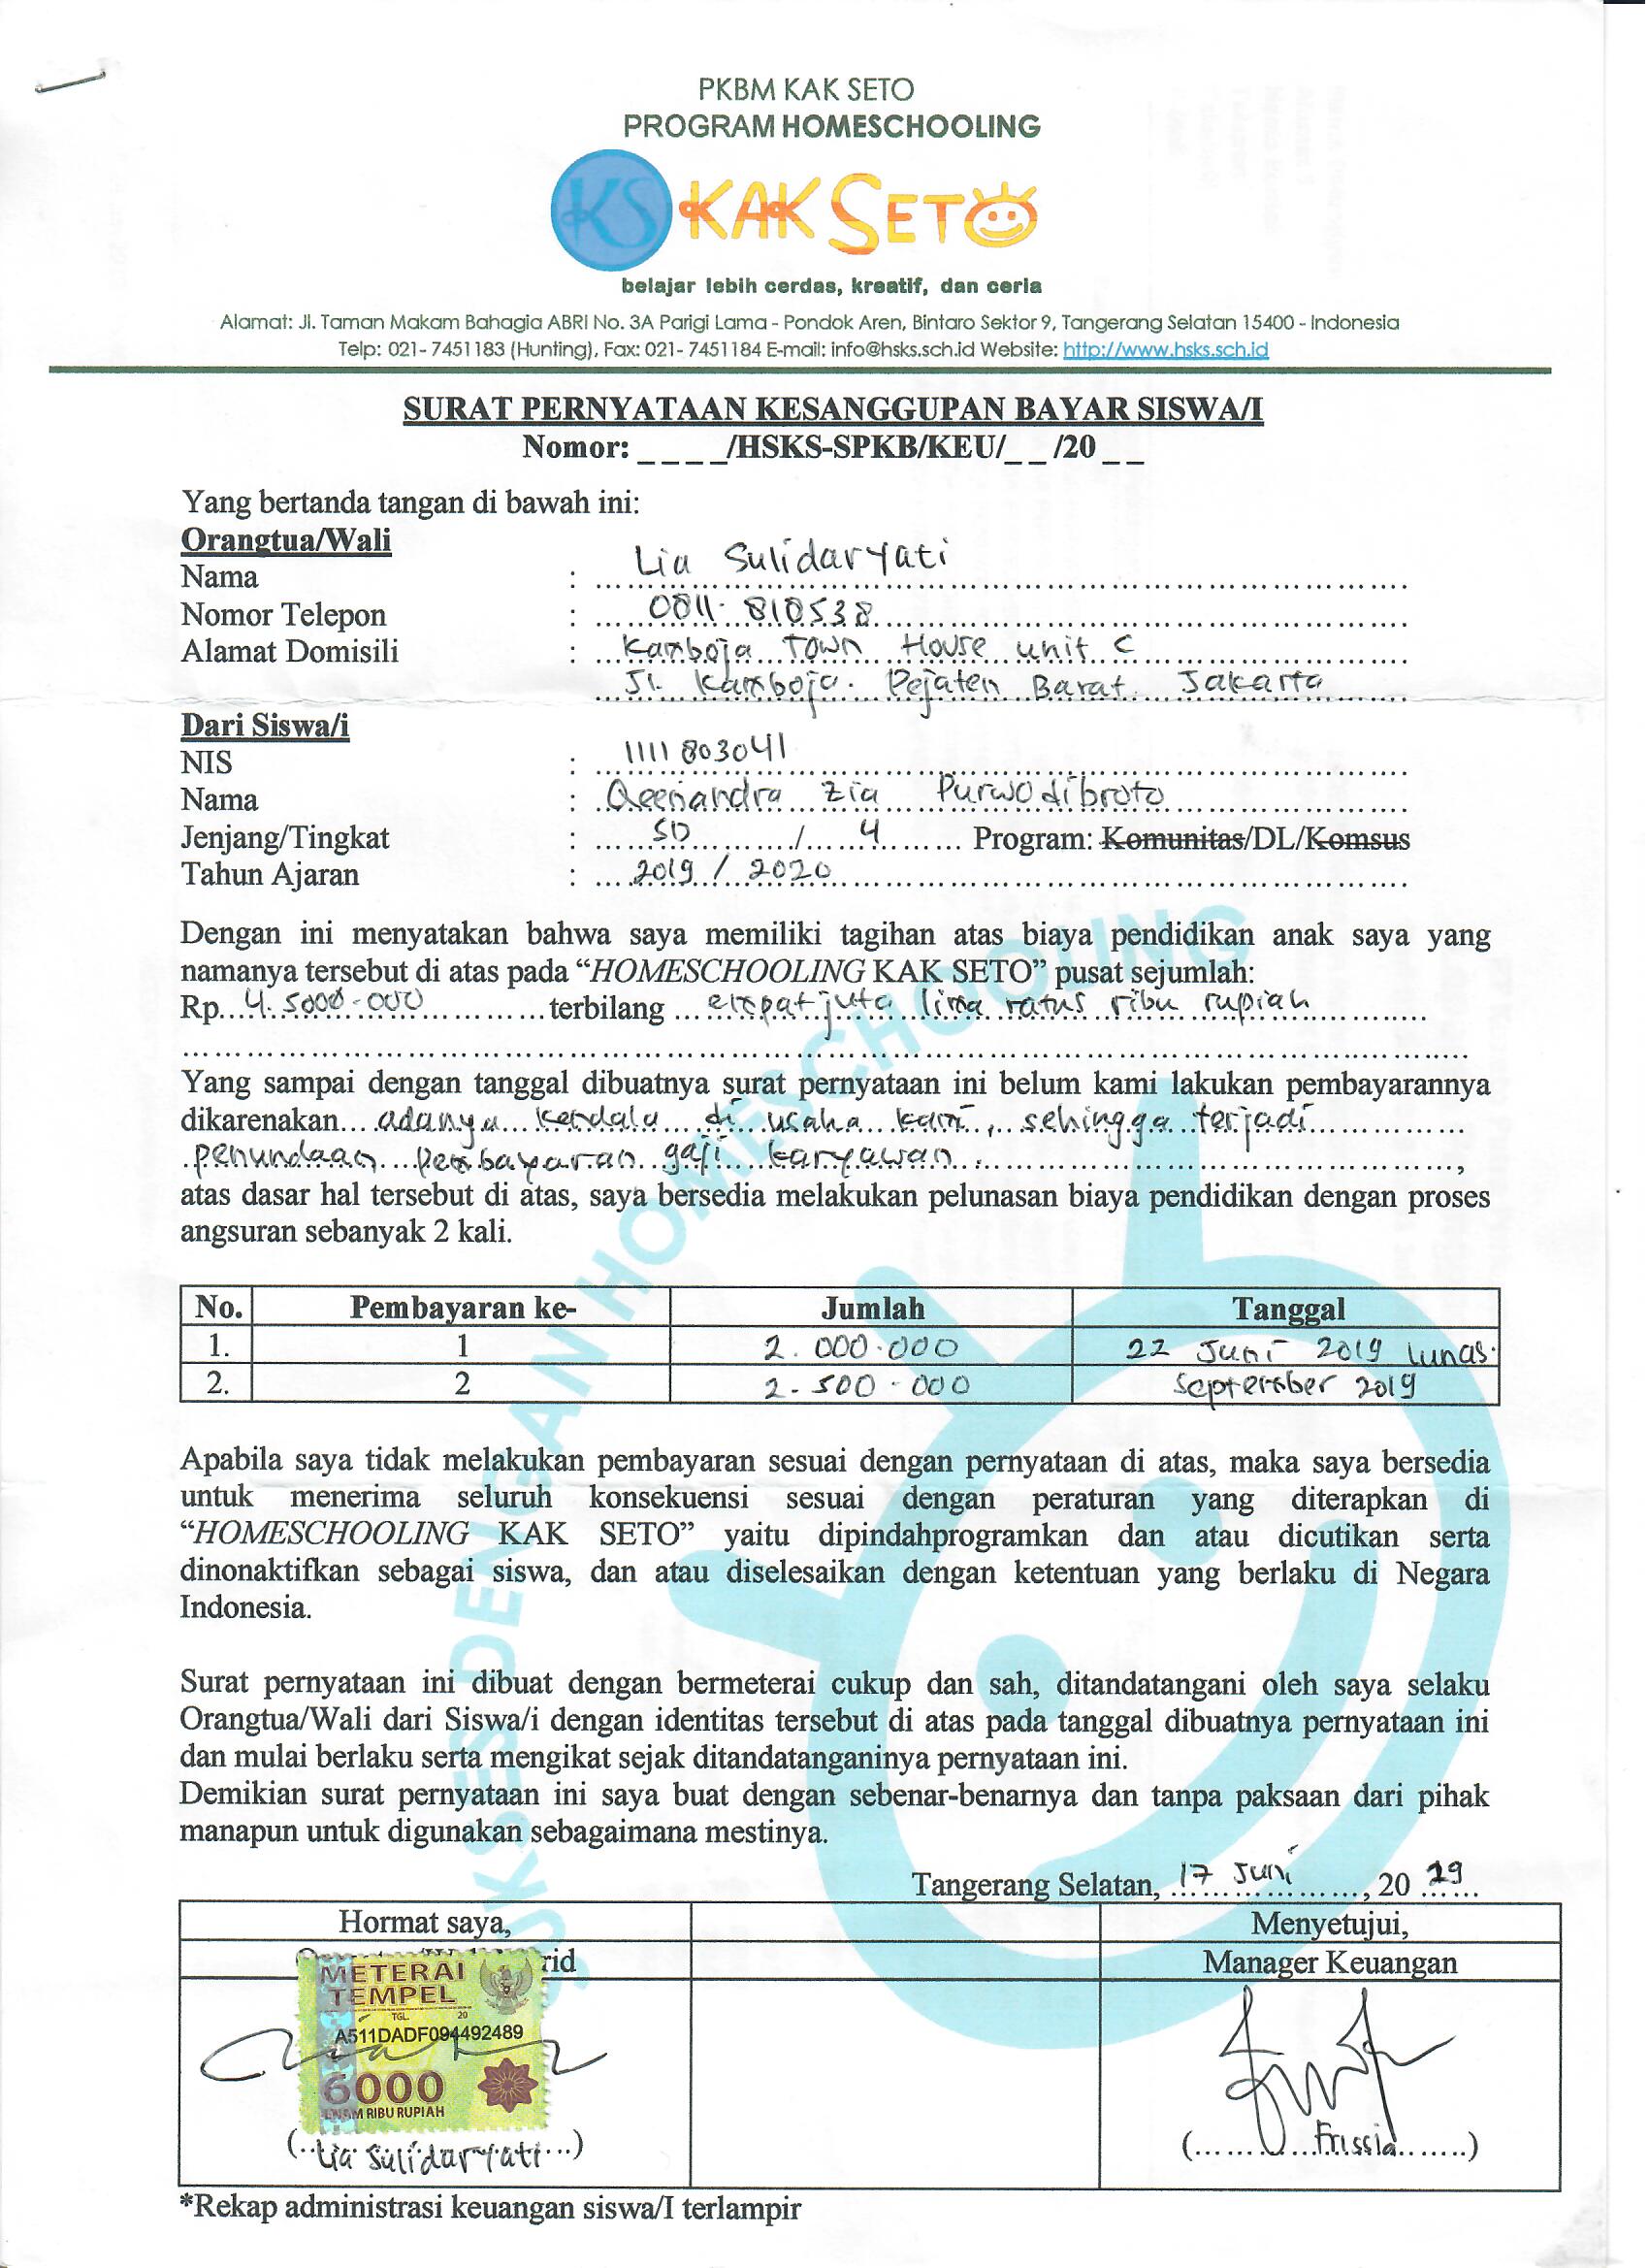 PKBM KAK SETO
PROGRAM HOMESCHOOLING
KS KAK SETO
belajar lebih cerdas, kreatif, dan ceria
Alamat: Jl. Taman Makam Bahagia ABRI No. 3A Parigi Lama - Pondok Aren, Bintaro Sektor 9, Tangerang Selatan 15400 - Indonesia
Telp: 021- 7451183 (Hunting), Fax: 021- 7451184 E-mail: info@hsks.sch.id Website: http://www.hsks.sch.id
SURAT PERNYATAAN KESANGGUPAN BAYAR SISWA/I
Nomor: _ _ _ _/HSKS-SPKB/KEU/_ _ /20 _ _
Yang bertanda tangan di bawah ini:
Orangtua/Wali
Nama : Lia Sulidaryati
Nomor Telepon : 0811. 810538
Alamat Domisili : Kamboja Town House unit C
Jl. Kamboja. Pejaten Barat. Jakarta
Dari Siswa/i
NIS : 1111 803041
Nama : Qeenandra Zia Purwodibroto
Jenjang/Tingkat : SD / 4 Program: Komunitas/DL/Komsus
Tahun Ajaran : 2019 / 2020
Dengan ini menyatakan bahwa saya memiliki tagihan atas biaya pendidikan anak saya yang
namanya tersebut di atas pada “HOMESCHOOLING KAK SETO” pusat sejumlah:
Rp. 4.5000.000 terbilang empat juta lima ratus ribu rupiah
Yang sampai dengan tanggal dibuatnya surat pernyataan ini belum kami lakukan pembayarannya
dikarenakan adanya kendala di usaha kami, sehingga terjadi
penundaan pembayaran gaji karyawan.,
atas dasar hal tersebut di atas, saya bersedia melakukan pelunasan biaya pendidikan dengan proses
angsuran sebanyak 2 kali.
No. Pembayaran ke- Jumlah Tanggal
1. 1 2.000.000 22 Juni 2019 lunas.
2. 2 2.500.000 September 2019
Apabila saya tidak melakukan pembayaran sesuai dengan pernyataan di atas, maka saya bersedia
untuk menerima seluruh konsekuensi sesuai dengan peraturan yang diterapkan di
“HOMESCHOOLING KAK SETO” yaitu dipindahprogramkan dan atau dicutikan serta
dinonaktifkan sebagai siswa, dan atau diselesaikan dengan ketentuan yang berlaku di Negara
Indonesia.
Surat pernyataan ini dibuat dengan bermeterai cukup dan sah, ditandatangani oleh saya selaku
Orangtua/Wali dari Siswa/i dengan identitas tersebut di atas pada tanggal dibuatnya pernyataan ini
dan mulai berlaku serta mengikat sejak ditandatanganinya pernyataan ini.
Demikian surat pernyataan ini saya buat dengan sebenar-benarnya dan tanpa paksaan dari pihak
manapun untuk digunakan sebagaimana mestinya.
Tangerang Selatan, 17 Juni, 20 19
Hormat saya, Menyetujui,
Manager Keuangan
METERAI
TEMPEL
TGL. 20
A511DADF094492489
6000
ENAM RIBU RUPIAH
(Lia Sulidaryati) (Frissia)
*Rekap administrasi keuangan siswa/I terlampir
SUKSES DENGAN HOMESCHOOLING